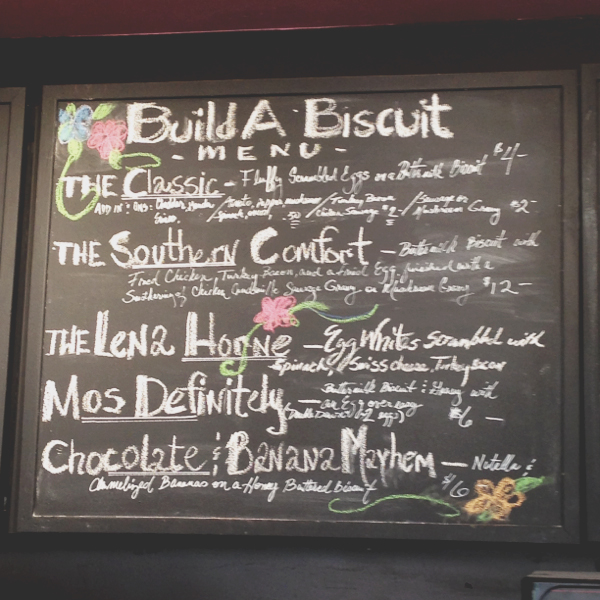 Build A Biscuit
- MENU -
THE Classic - Fluffy Scrambled Eggs on a Buttermilk Biscuit $4-
ADD IN'S: Cheddar, / Tomato, / Turkey Bacon / Sausage or
Swiss. / Spinach, onion, .50 / Chicken Sausage $2- / Mushroom Gravy $2-
THE Southern Comfort - Buttermilk Biscuit with
Fried Chicken, Turkey Bacon, and a Fried Egg, finished with a
Smothering of Chicken Andouille Sausage Gravy or Mushroom Gravy $12-
THE Lena Horne - Egg Whites Scrambled with
Spinach, Swiss cheese, Turkey Bacon
Mos Definitely - Buttermilk Biscuit & Gravy with
One Egg over easy
(2 eggs) $6 -
Chocolate & Banana Mayhem - Nutella &
Caramelized Bananas on a Honey Buttered Biscuit $6